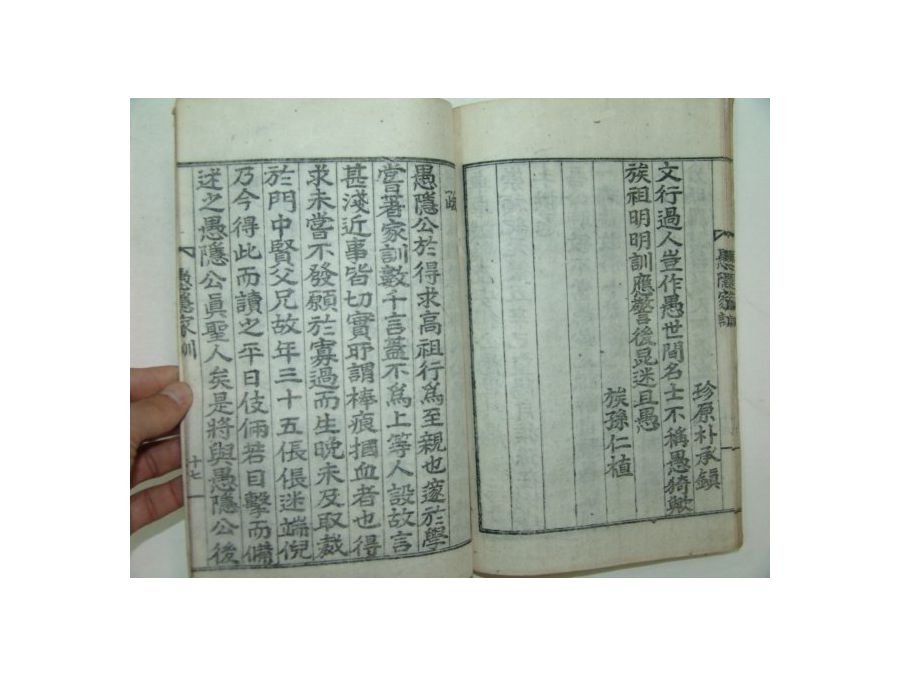 愚隱家訓
珍原朴承鎭
文行過人豈作愚世間名士不稱愚猗歟
族祖明明訓應警後昆迷且愚
族孫仁植
跋
愚隱公於得求高祖行爲至親也邃於學
嘗著家訓數千言蓋不爲上等人設故言
甚淺近事皆切實所謂棒痕摑血者也得
求未嘗不發願於寡過而生晩未及取裁
於門中賢父兄故年三十五倀倀迷端倪
乃今得此而讀之平日伎倆若目擊而備
述之愚隱公眞聖人矣是將與愚隱公後
愚隱家訓
十七